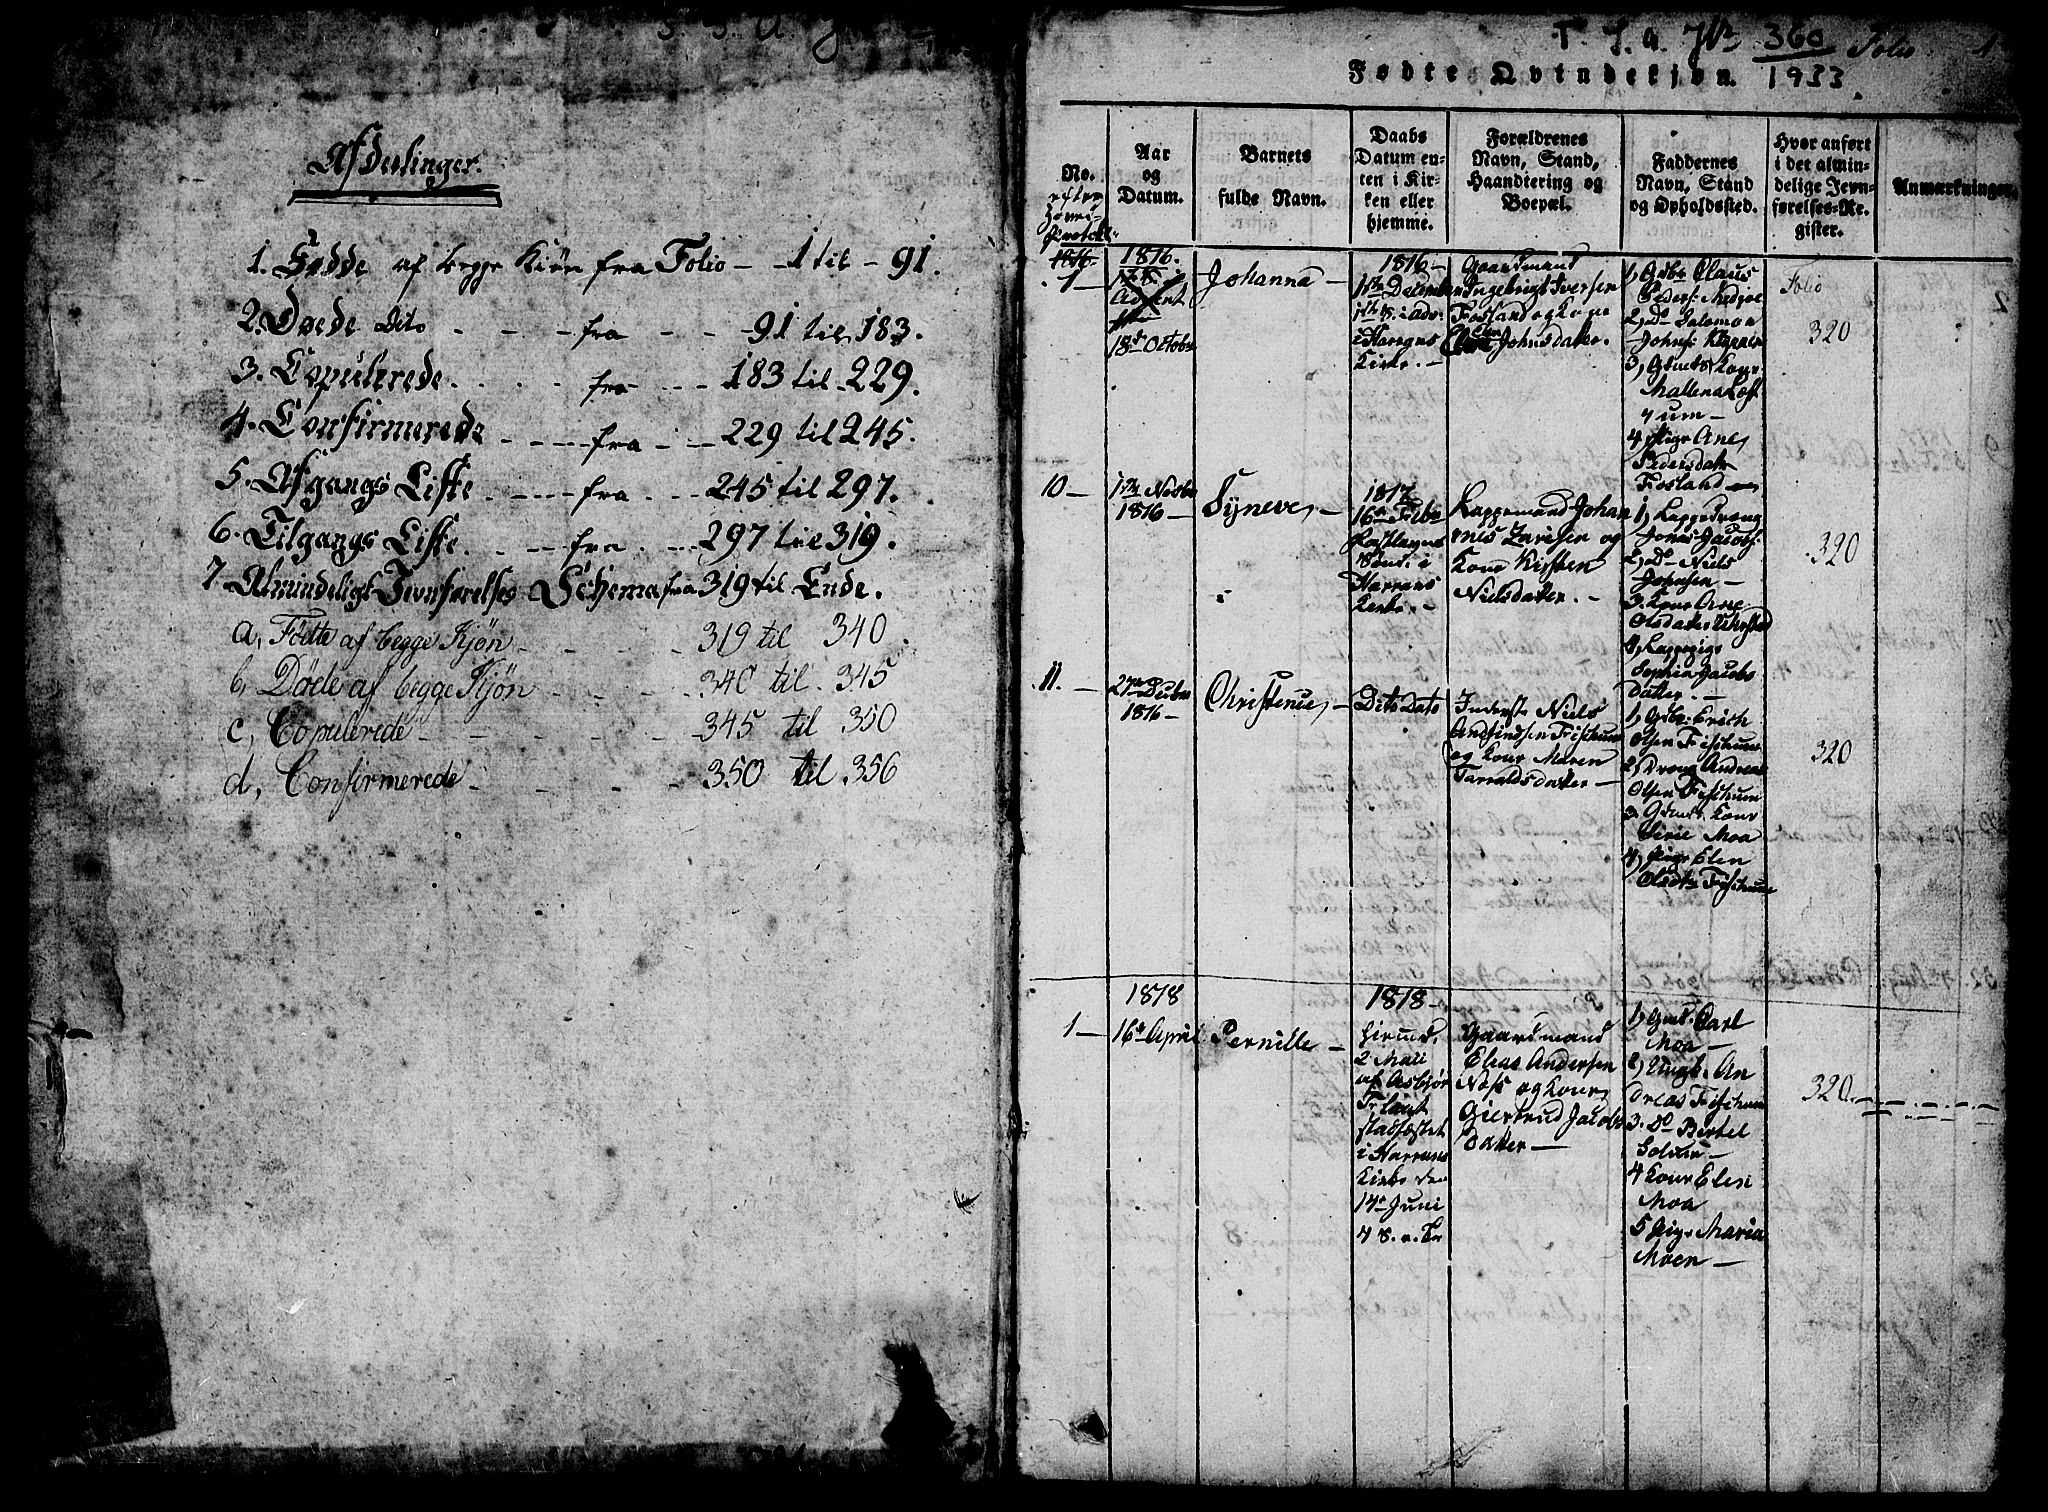 Afdeelinger.
1. Fødde af begge Kiøn fra Folio - 1 til - 91.
2. Døde Dito - - - fra - - 91 til 183.
3. Copulerede. - - - fra - - - 183 til 229.
4. Confirmerede - - - fra - - - 229 til 245.
5. Afgangs Liste. - - - fra. - - 245 til 297.
6. Tilgangs Liste. - - - fra. - - 297 til 319.
7. Almindeligt Jevnførelses Schema fra 319 til Ende.
a, Fødte af begge Kjøn - - - - 319 til 340.
b, Døde af begge Kjøn - - - - 340 til. 345
c, Copulerede - - - - - 345 til 350
d, Confirmerede - - - - - 350 til 356
360 Folio 1
Fødte Qvindekjøn. 1933
No.
efter
Aar
og
Datum.
Barnets
fulde Navn.
Daabs
Datum en-
ten i Kir-
ken eller
hjemme.
Forældrenes
Navn, Stand,
Haandtering og
Boepæl.
Faddernes
Navn, Stand
og Opholdssted.
Hvor anført
i det almin-
delige Jevn-
førelses-Re-
gister.
Anmærkninger.
1816.
1 -
1816.
Advent
18de Octobr
Johanna -
1816 -
1ste December
i Harrans
Kirke. -
Gaardmand
Ingebrigt Iversen
Fosland og Kone
Johnsdatter.
1, Gdbr Claus
Peders.
2, do Salomon
Johns.
3, Gdmds Kone
Mallena
4, Pige Ane
Pedersdatr
Fosland -
Folio
320
10 -
1ste Novbr
1816 -
Syneve, -
1817
16de Febr
i
Harrans
Kirke. -
Lappemand Johan
nes Larisen og
Kone Kirsten
Nielsdatter. -
1, Lappedreng
Jonas Jacobs.
2, do Niels
Johnsen -
3. Kone Ane
Olsdatter
4, Lappepige
Sophia Jacobs
datter. -
320
11. -
27de Decbr
1816 -
Christence, -
Dito Dato
Inderste Niels
Andfindsen Fischum
og Kone Maren
Tarraldsdatter -
1, Gdbr. Erich
Olsen Fischum
2, Dreng Andreas
Olsen Fischum
3. Gdmds. Kone
Sirie Moa
4, Pige Elen
Olsdtr Fischum
320
1818
1 -
16de April
Pernille -
1818 -
2 Maii
af Asbjør
stadfæstet
i Harrans
Kirke den
14de Juni
4 S. e. Tr
Gaardmand
Elias Andersen
og Kone
Giertrud Jacobs
datter -
1, Gmd. Carl
Moa -
2, Ungk. An
dreas Fischum
3. do Bertel
4 Kone Elen
Moa
5 Pige Maria
Moen -
320.